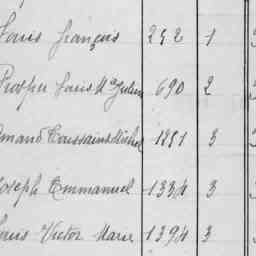 Louis François 252 1
Prosper Louis Mie Julien 690 2
Armand Toussaint Michel 1251 3
Joseph Emmanuel 1334 3
Louis Victor Marie 1394 3